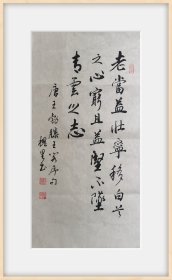 老當益壯寧移白首
之心窮且益堅不墜
青雲之志
唐王勃滕王閣序句